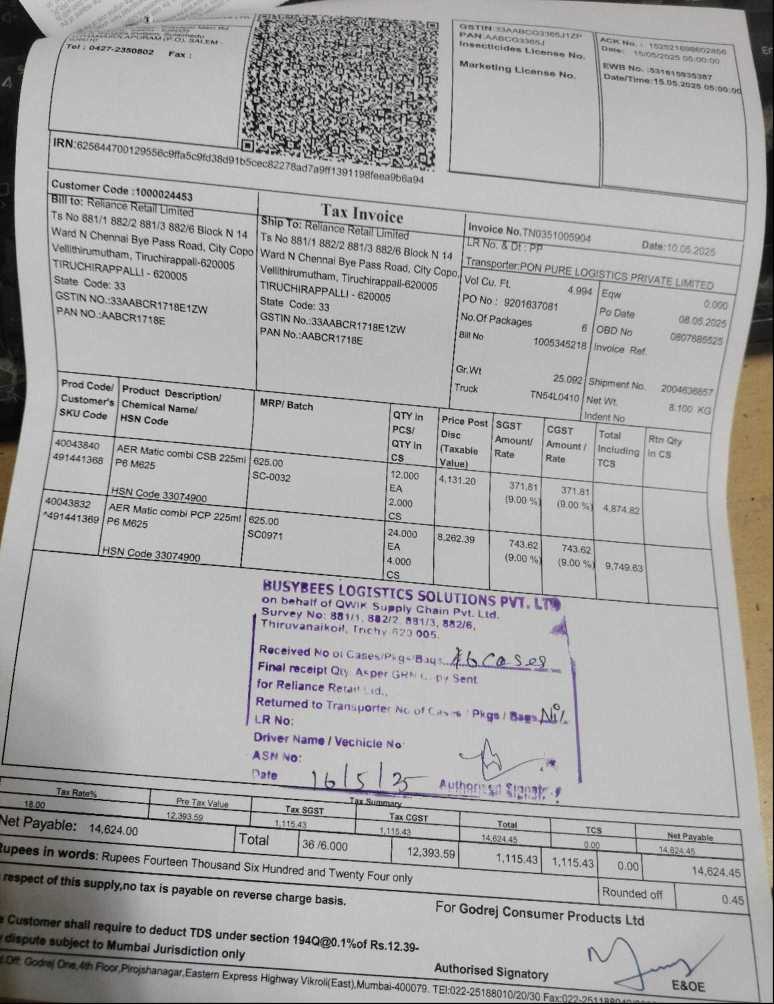 Tel : 0427-2350802 Fax :
GSTIN :33AABCG3365J1ZP
PAN:AABCG3365J
Insecticides License No.
Marketing License No.
ACK No. : 152521698602856
Date: 15/05/2025 05:00:00
EWB No. :531615935387
Date/Time:15.05.2025 05:00:00
IRN:625644700129556c9ffa5c9fd38d91b5cec82278ad7a9ff1391198feea9b6a94
Customer Code :1000024453
Tax Invoice
Invoice No.TN0351005904 Date:10.05.2025
Bill to: Reliance Retail Limited
Ts No 881/1 882/2 881/3 882/6 Block N 14
Ward N Chennai Bye Pass Road, City Copo
Vellithirumutham, Tiruchirappali-620005
TIRUCHIRAPPALLI - 620005
State Code: 33
GSTIN NO.:33AABCR1718E1ZW
PAN NO.:AABCR1718E
Ship To: Reliance Retail Limited
Ts No 881/1 882/2 881/3 882/6 Block N 14
Ward N Chennai Bye Pass Road, City Copo,
Vellithirumutham, Tiruchirappali-620005
TIRUCHIRAPPALLI - 620005
State Code: 33
GSTIN No.:33AABCR1718E1ZW
PAN No.:AABCR1718E
LR No. & Dt : PP
Transporter:PON PURE LOGISTICS PRIVATE LIMITED
Vol Cu. Ft. 4.994 Eqw 0.000
PO No : 9201637081 Po Date 08.05.2025
No.Of Packages 6 OBD No 0807685525
Bill No 1005345218 Invoice Ref.
Gr.Wt 25.092 Shipment No. 2004636857
Truck TN54L0410 Net Wt. 8.100 KG
Indent No
Prod Code/ Customer's SKU Code
Product Description/ Chemical Name/ HSN Code
MRP/ Batch
QTY in PCS/ QTY in CS
Price Post Disc (Taxable Value)
SGST Amount/ Rate
CGST Amount / Rate
Total Including TCS
Rtn Qty in CS
40043840 AER Matic combi CSB 225ml 625.00 12.000 4,131.20 371.81 371.81 4,874.82
491441368 P6 M625 SC-0032 EA (9.00 %) (9.00 %)
2.000
HSN Code 33074900 CS
40043832 AER Matic combi PCP 225ml 625.00 24.000 8,262.39 743.62 743.62 9,749.63
^491441369 P6 M625 SC0971 EA (9.00 %) (9.00 %)
4.000
HSN Code 33074900 CS
BUSYBEES LOGISTICS SOLUTIONS PVT. LTD
on behalf of QWIK Supply Chain Pvt. Ltd.
Survey No: 881/1, 882/2, 881/3, 882/6,
Thiruvanaikoil, Trichy 620 005.
Received No of Cases/Pkgs/Bags 6 cases
Final receipt Qty. Asper GRN Copy Sent
for Reliance Retail Ltd.,
Returned to Transporter No of Cases / Pkgs / Bags Nil
LR No:
Driver Name / Vechicle No
ASN No:
Date 16/5/25 Authorised Signatory
Tax Summary
Tax Rate% Pre Tax Value Tax SGST Tax CGST Total TCS Net Payable
18.00 12,393.59 1,115.43 1,115.43 14,624.45 0.00 14,624.45
Net Payable: 14,624.00 Total 36 /6.000 12,393.59 1,115.43 1,115.43 0.00 14,624.45
Rupees in words: Rupees Fourteen Thousand Six Hundred and Twenty Four only
Rounded off 0.45
respect of this supply,no tax is payable on reverse charge basis.
For Godrej Consumer Products Ltd
Customer shall require to deduct TDS under section 194Q@0.1%of Rs.12.39-
dispute subject to Mumbai Jurisdiction only
Authorised Signatory E&OE
Off: Godrej One,4th Floor,Pirojshanagar,Eastern Express Highway Vikroli(East),Mumbai-400079. TEl:022-25188010/20/30